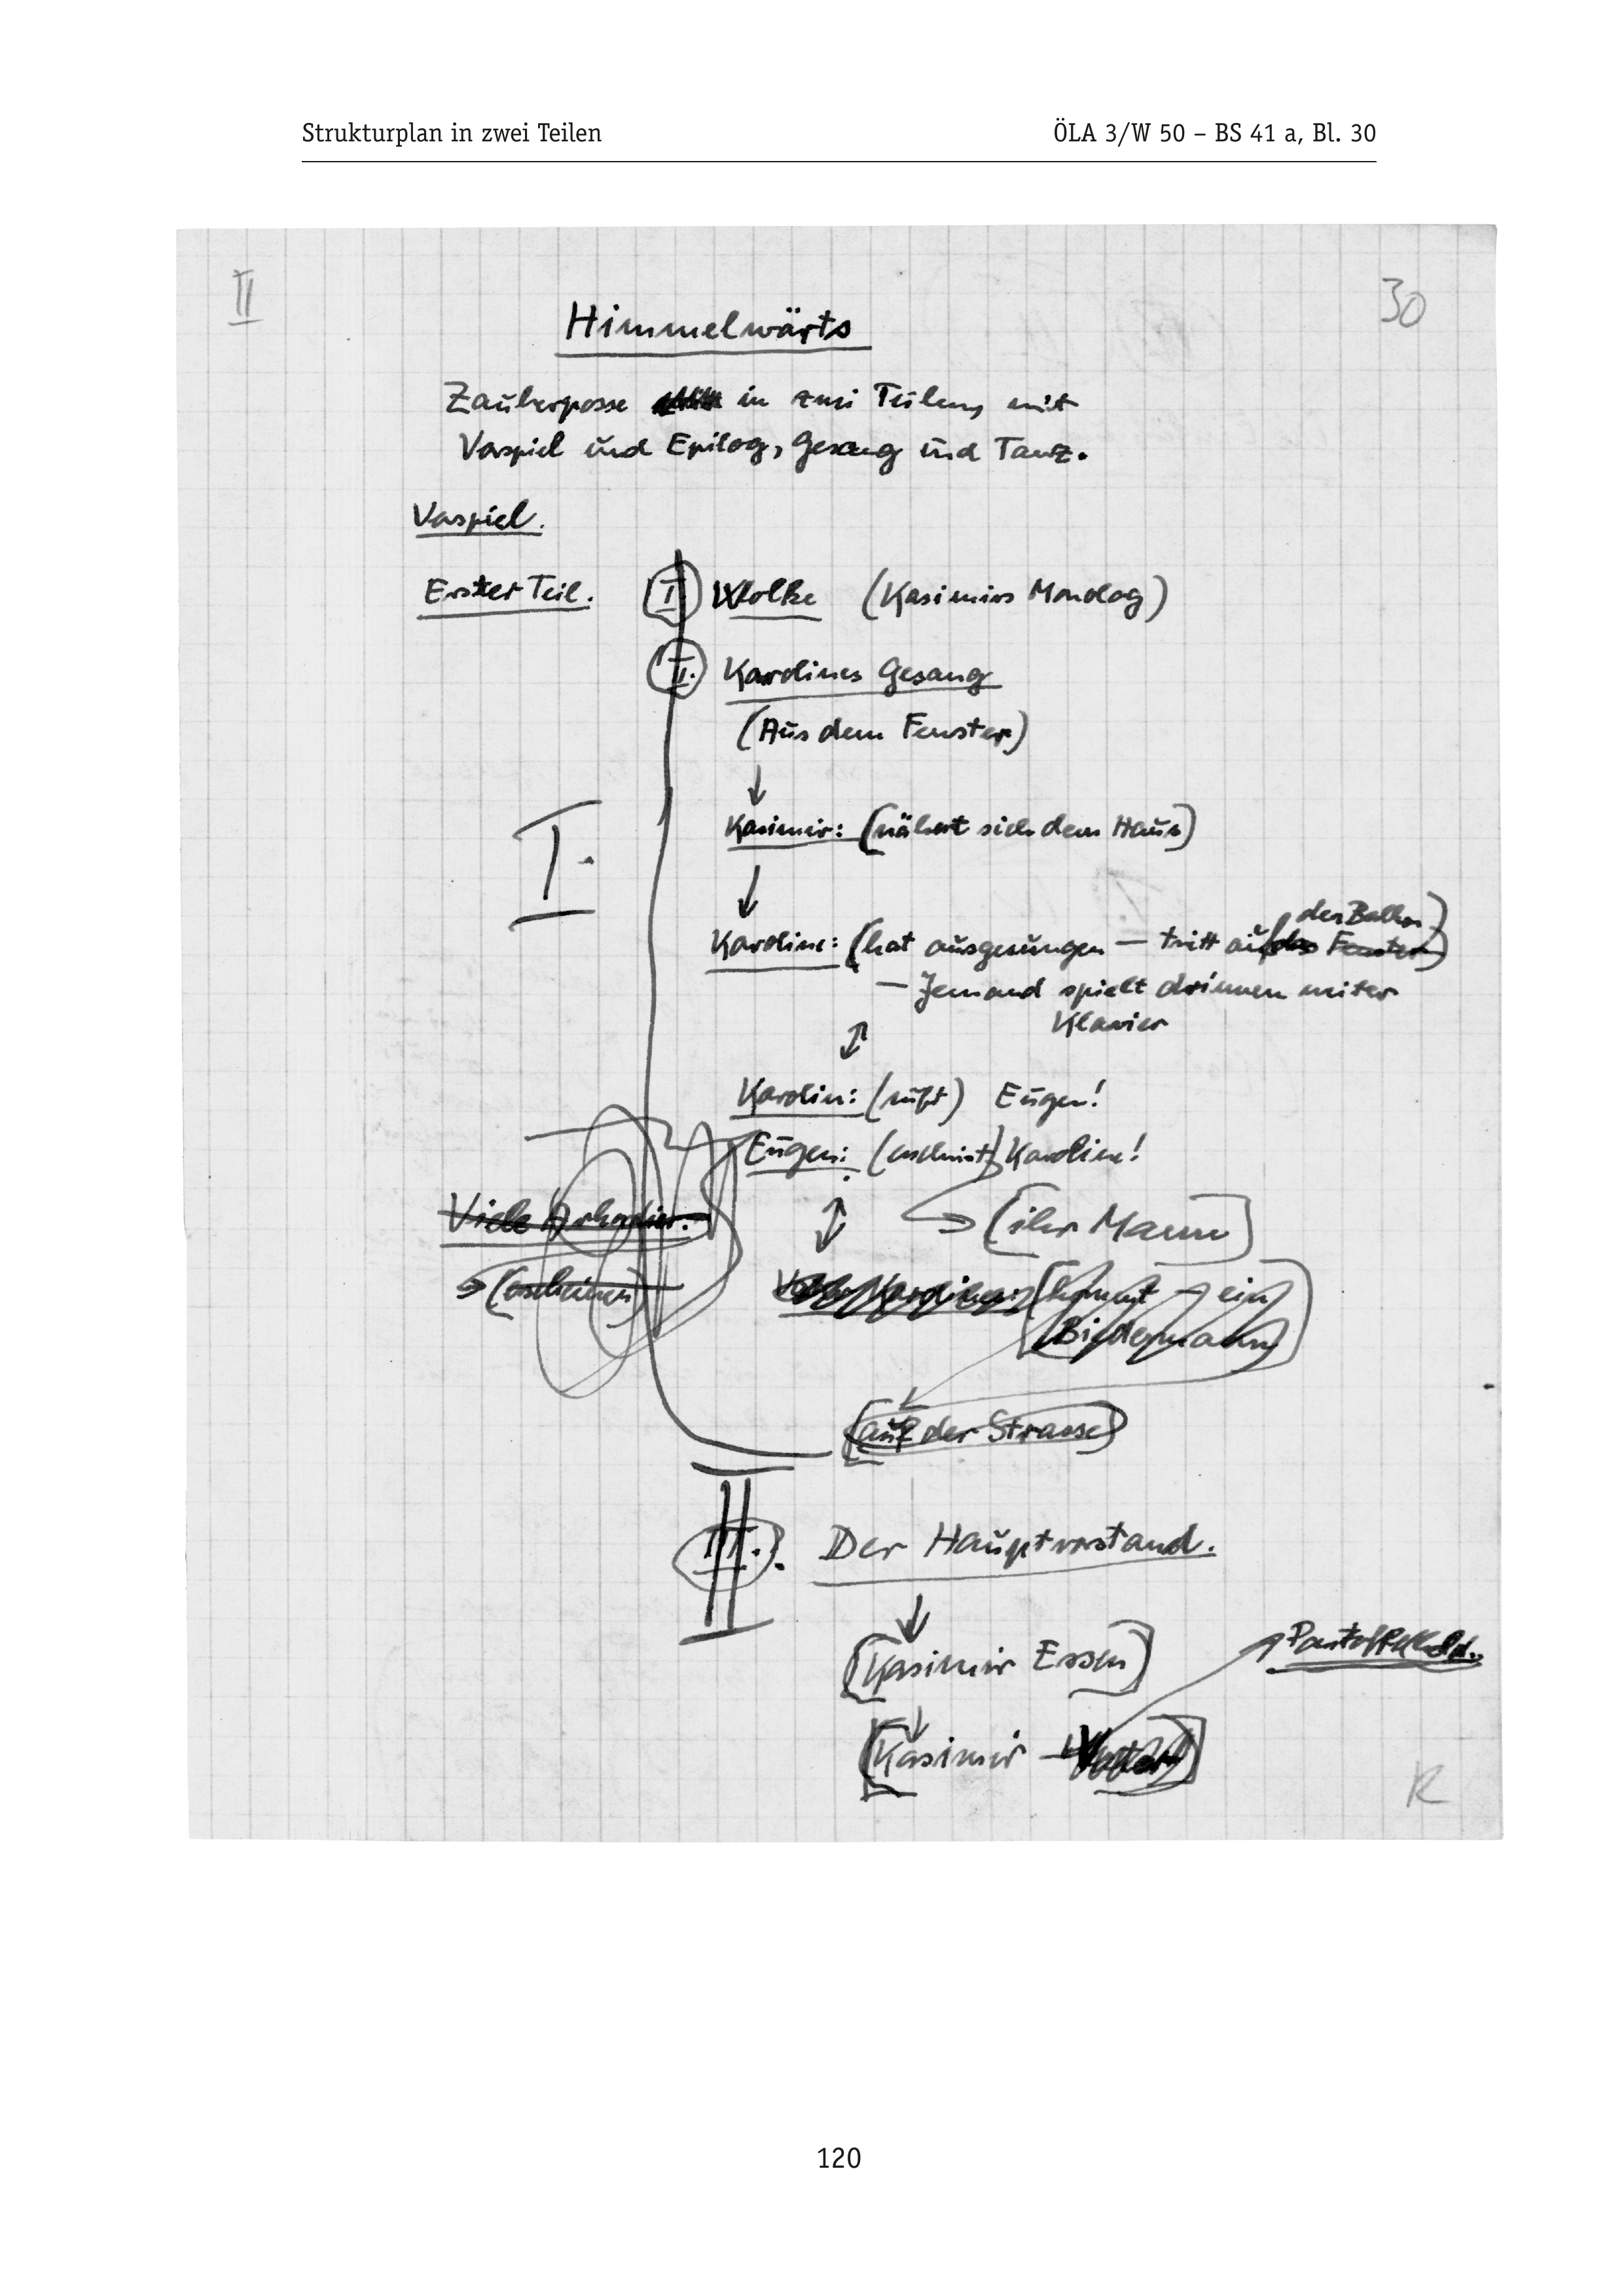 Strukturplan in zwei Teilen
ÖLA 3/W 50 – BS 41 a, Bl. 30
II
30
Himmelwärts
Zauberposse in zwei Teilen, mit
Vorspiel und Epilog, Gesang und Tanz.
Vorspiel.
Erster Teil. I Wolke (Kasimirs Monolog)
II. Karolines Gesang
(Aus dem Fenster)
Kasimir: (nähert sich dem Haus)
I.
den Balkon)
Karoline: (hat ausgesungen — tritt auf das Fenster)
— Jemand spielt drinnen weiter
Klavier
Karolin: (ruft) Eugen!
Eugen: (erscheint) Karoline!
Viele
(ihr Mann)
(erscheinen)
Karoline: (kommt — ein
Biedermann)
(auf der Strasse)
II
III. Der Hauptvorstand.
(Kasimir Essen)
Pantoffelheld.
(Kasimir – Vater)
R
120